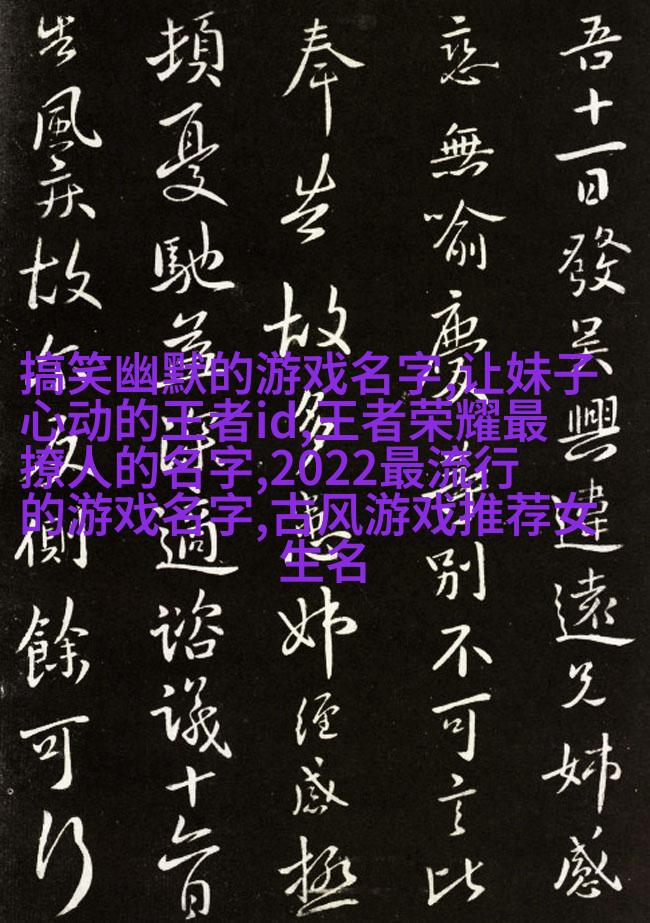 吾十一日發吴興違遠兄姊感
戀無喻別不可言比
奉告故多患姊經感極
頓憂馳益深適諮議十六日
告風疾故反側餘可行
搞笑幽默的游戏名字,让妹子
心动的王者id,王者荣耀最
撩人的名字,2022最流行
的游戏名字,古风游戏推荐女
生名